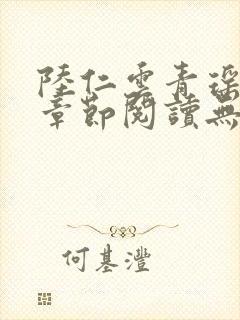 陸仁雲青瑶
章節閱讀無
何基灃